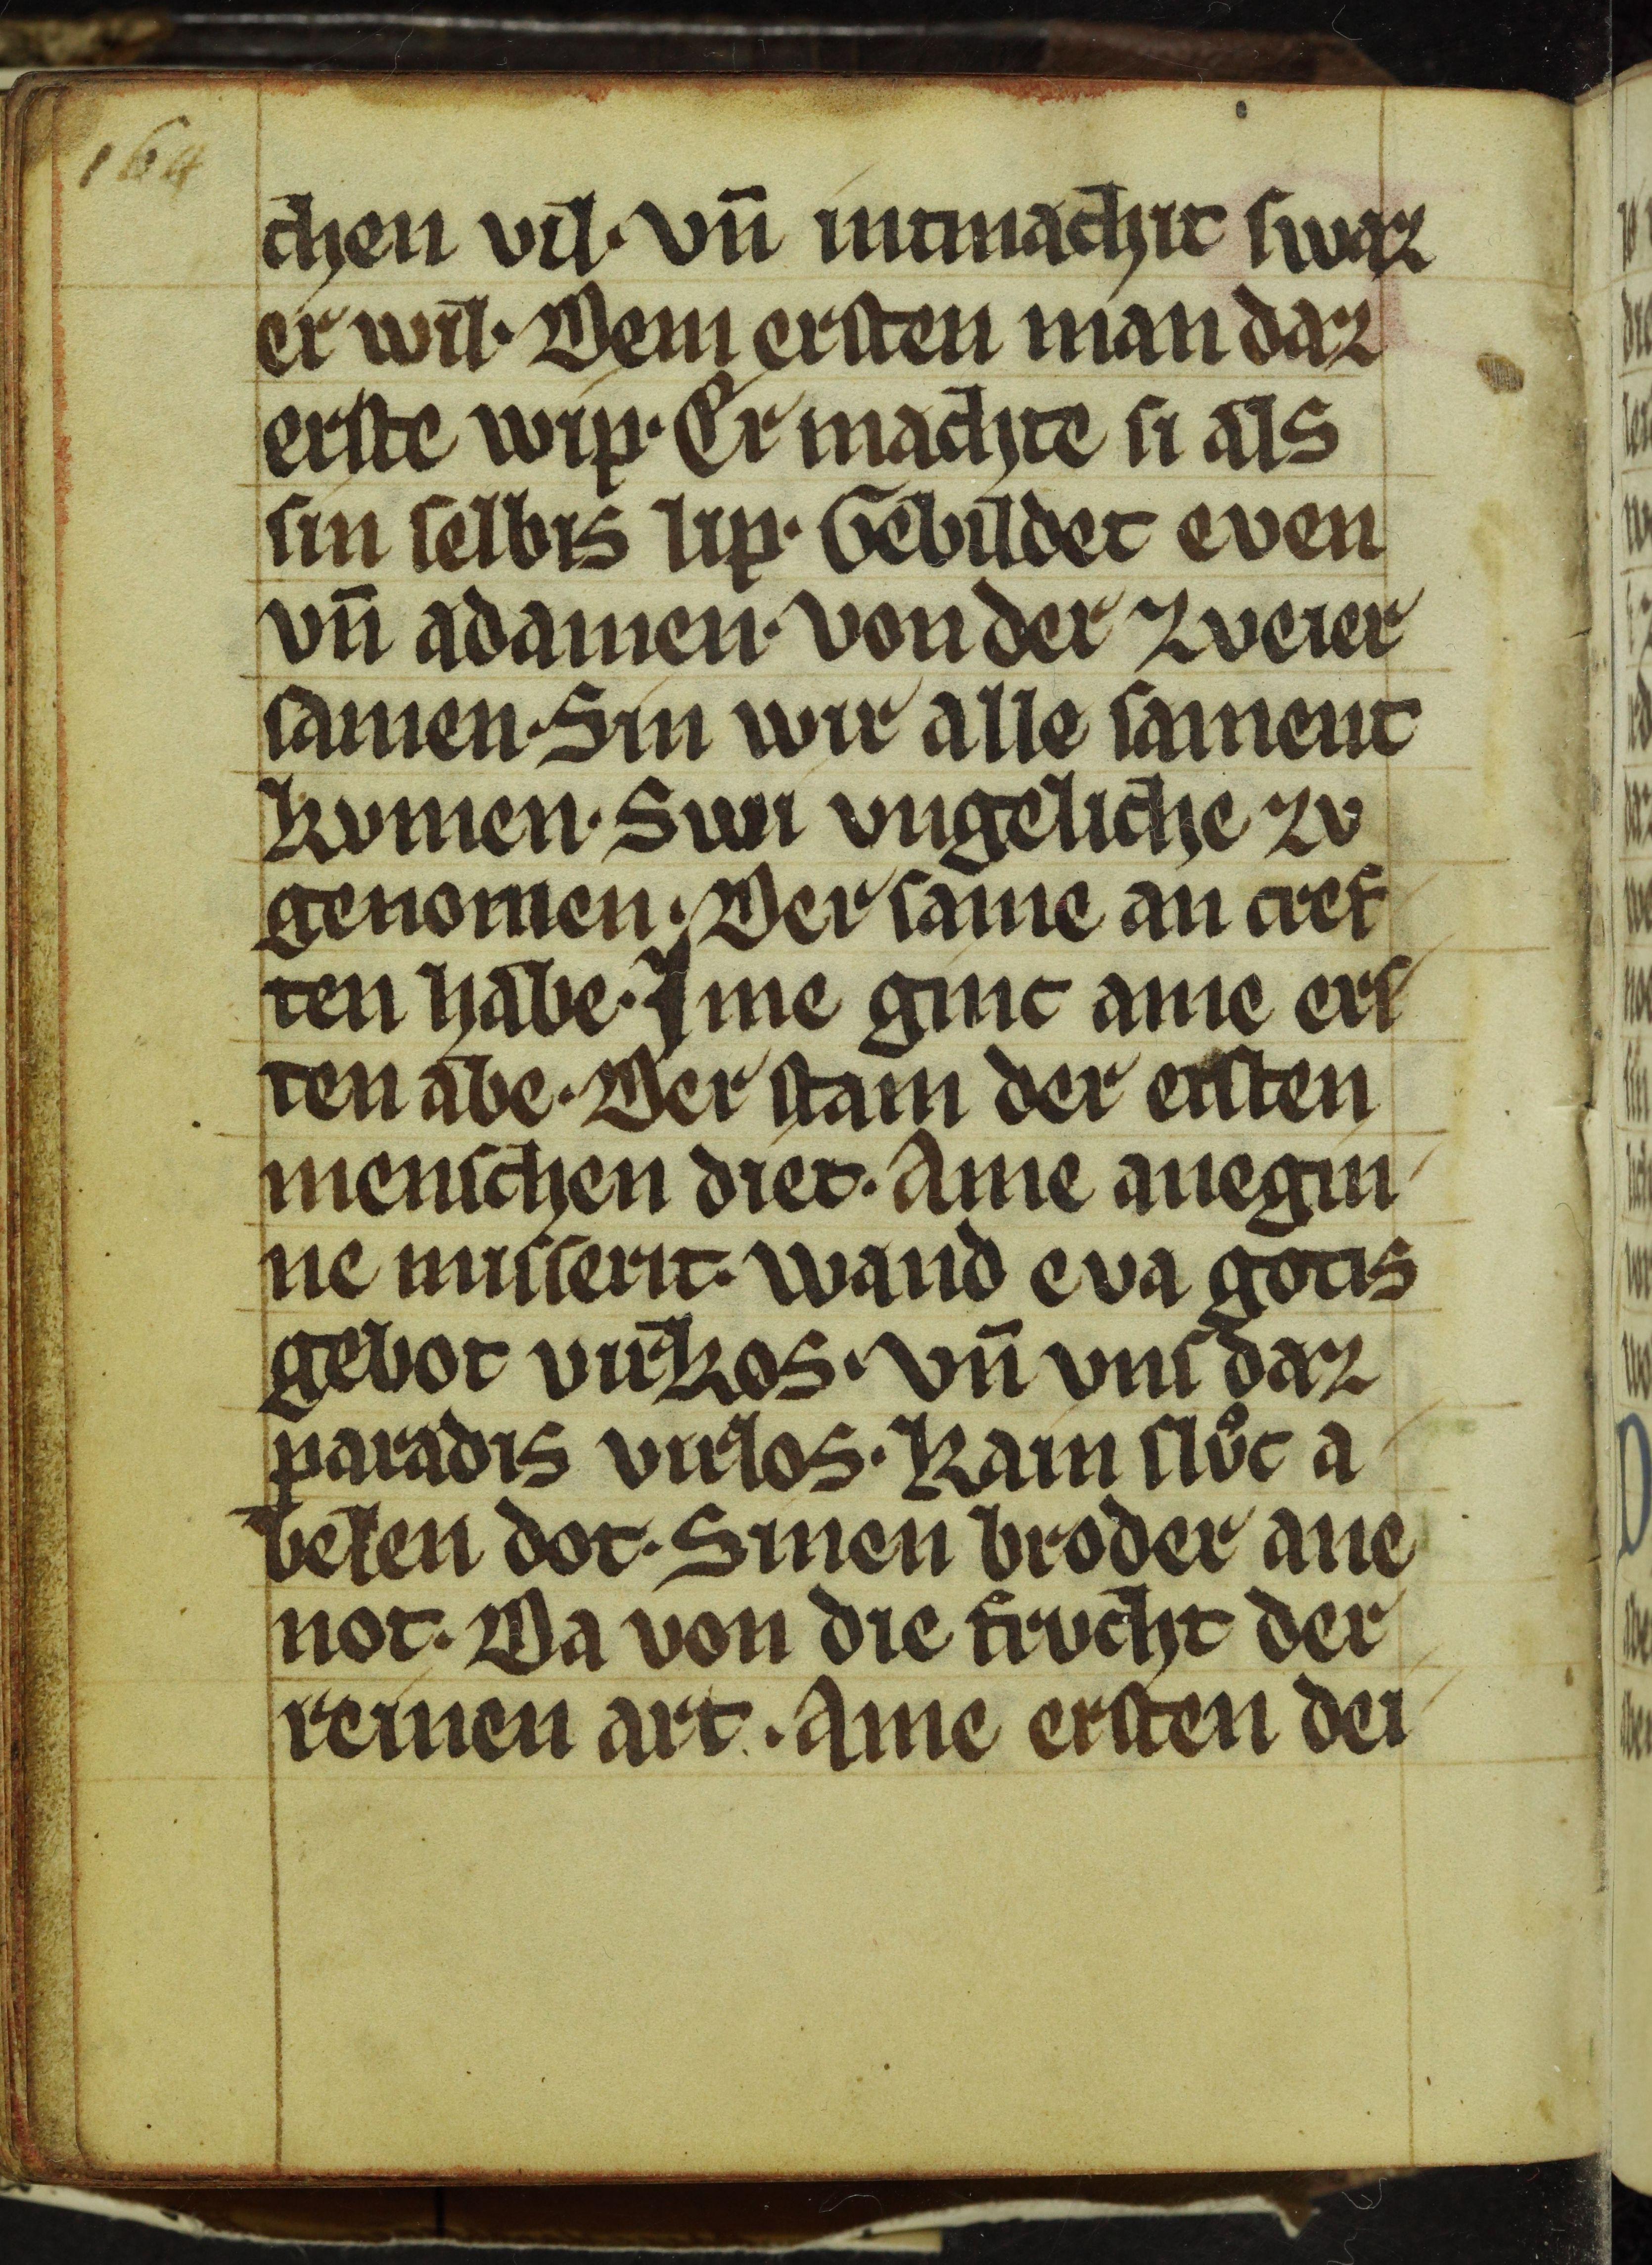 164
chen vil· vn̄ intmachit ſwaz
er wil· Dem erſten man daz
erſte wip· Er machte ſi als
ſin ſelbis lip· Gebildet even
vn̄ adamen· von der zveier
ſamen· Sin wir alle ſament
kvmen· Swi vngeliche zv
genomen· Der ſame an cref
ten habe· Ime ginc ame erſ
ten abe· Der ſtam der erſten
menſchen diet· Ame anegin
ne miſſerit· wand eva gotis
gebot virkos· vn̄ vnſ daz
paradis virlos· Kain ſlvͦc a
belen dot· Sinen broder ane
not· Da von die frvcht der
reinen art· Ame erſten dei